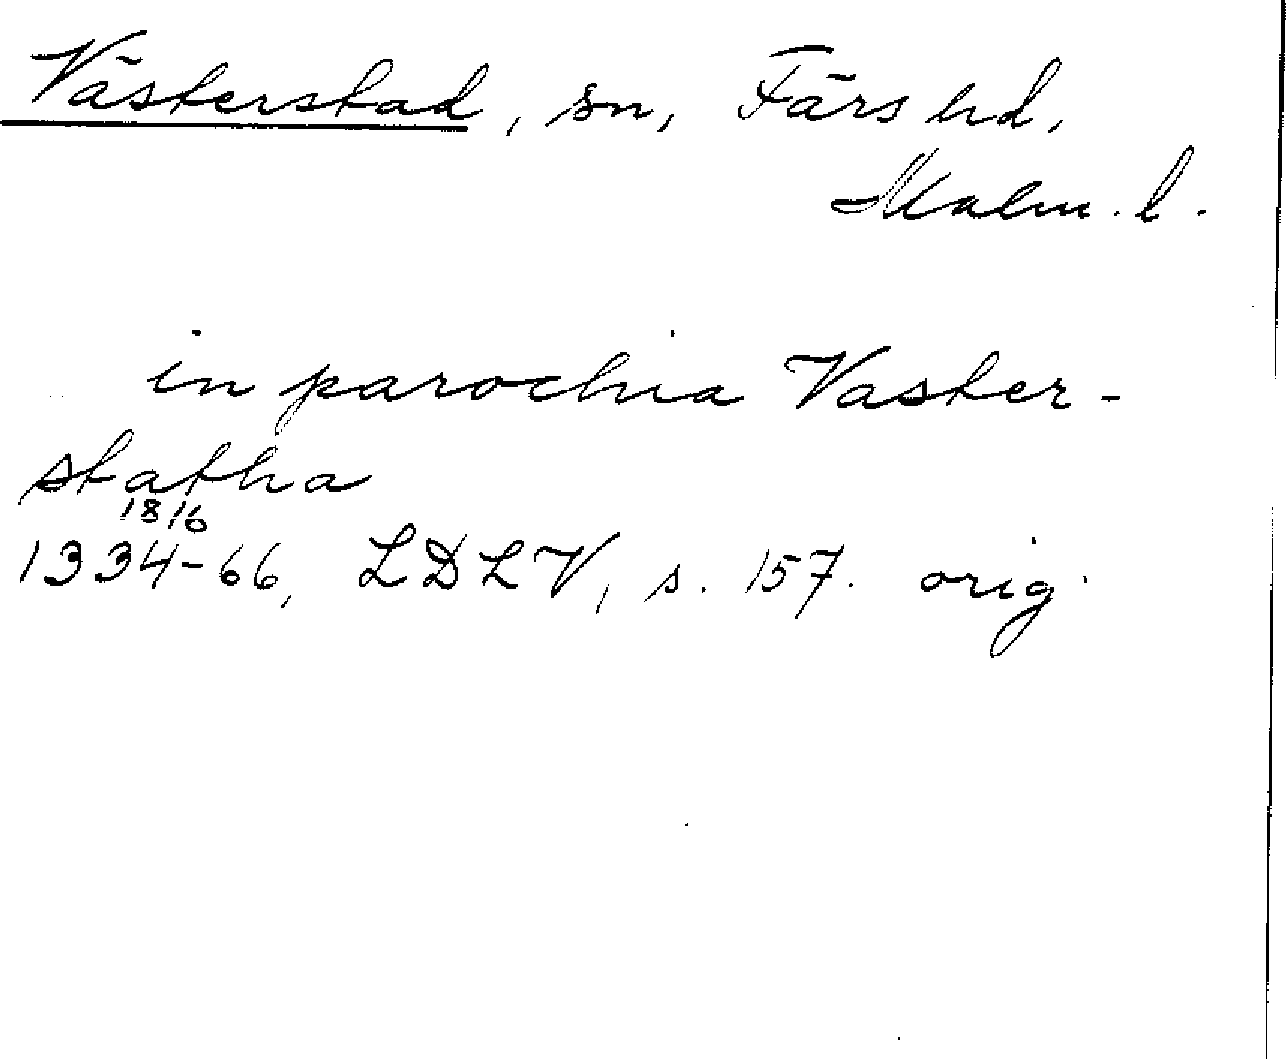 Västerstad, sn, Färs hd,
Malm. l.
in parochia Vaster-
statha
18/6
1334-66, LDLV, s. 157. orig.